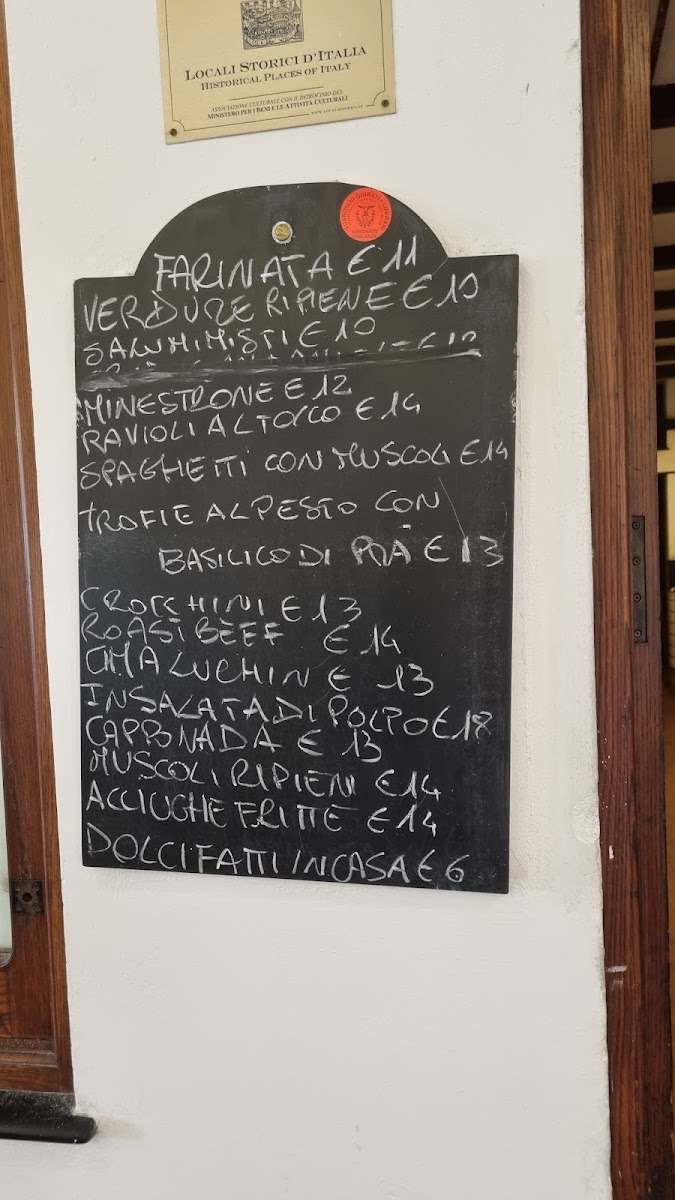 LOCALI STORICI D'ITALIA
HISTORICAL PLACES OF ITALY
ASSOCIAZIONE CULTURALE CON IL PATROCINIO DEL
MINISTERO PER I BENI E LE ATTIVITÀ CULTURALI
FARINATA € 11
VERDURE RIPIENE € 10
SALUMI MISTI € 10
MINESTRONE € 12
RAVIOLI AL TOCCO € 14
SPAGHETTI CON MUSCOLI € 14
TROFIE AL PESTO CON
BASILICO DI PRA € 13
CROCCHINI € 13
ROAST BEEF € 14
CIMA LUCHIN € 13
INSALATA DI POLPO € 18
CAPPONADA € 13
MUSCOLI RIPIENI € 14
ACCIUGHE FRITTE € 14
DOLCI FATTI IN CASA € 6